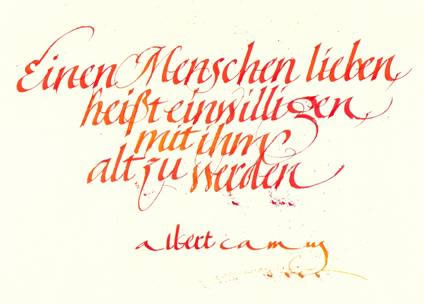 Einen Menschen lieben,
heißt einwilligen,
mit ihm
alt zu werden
albert camus